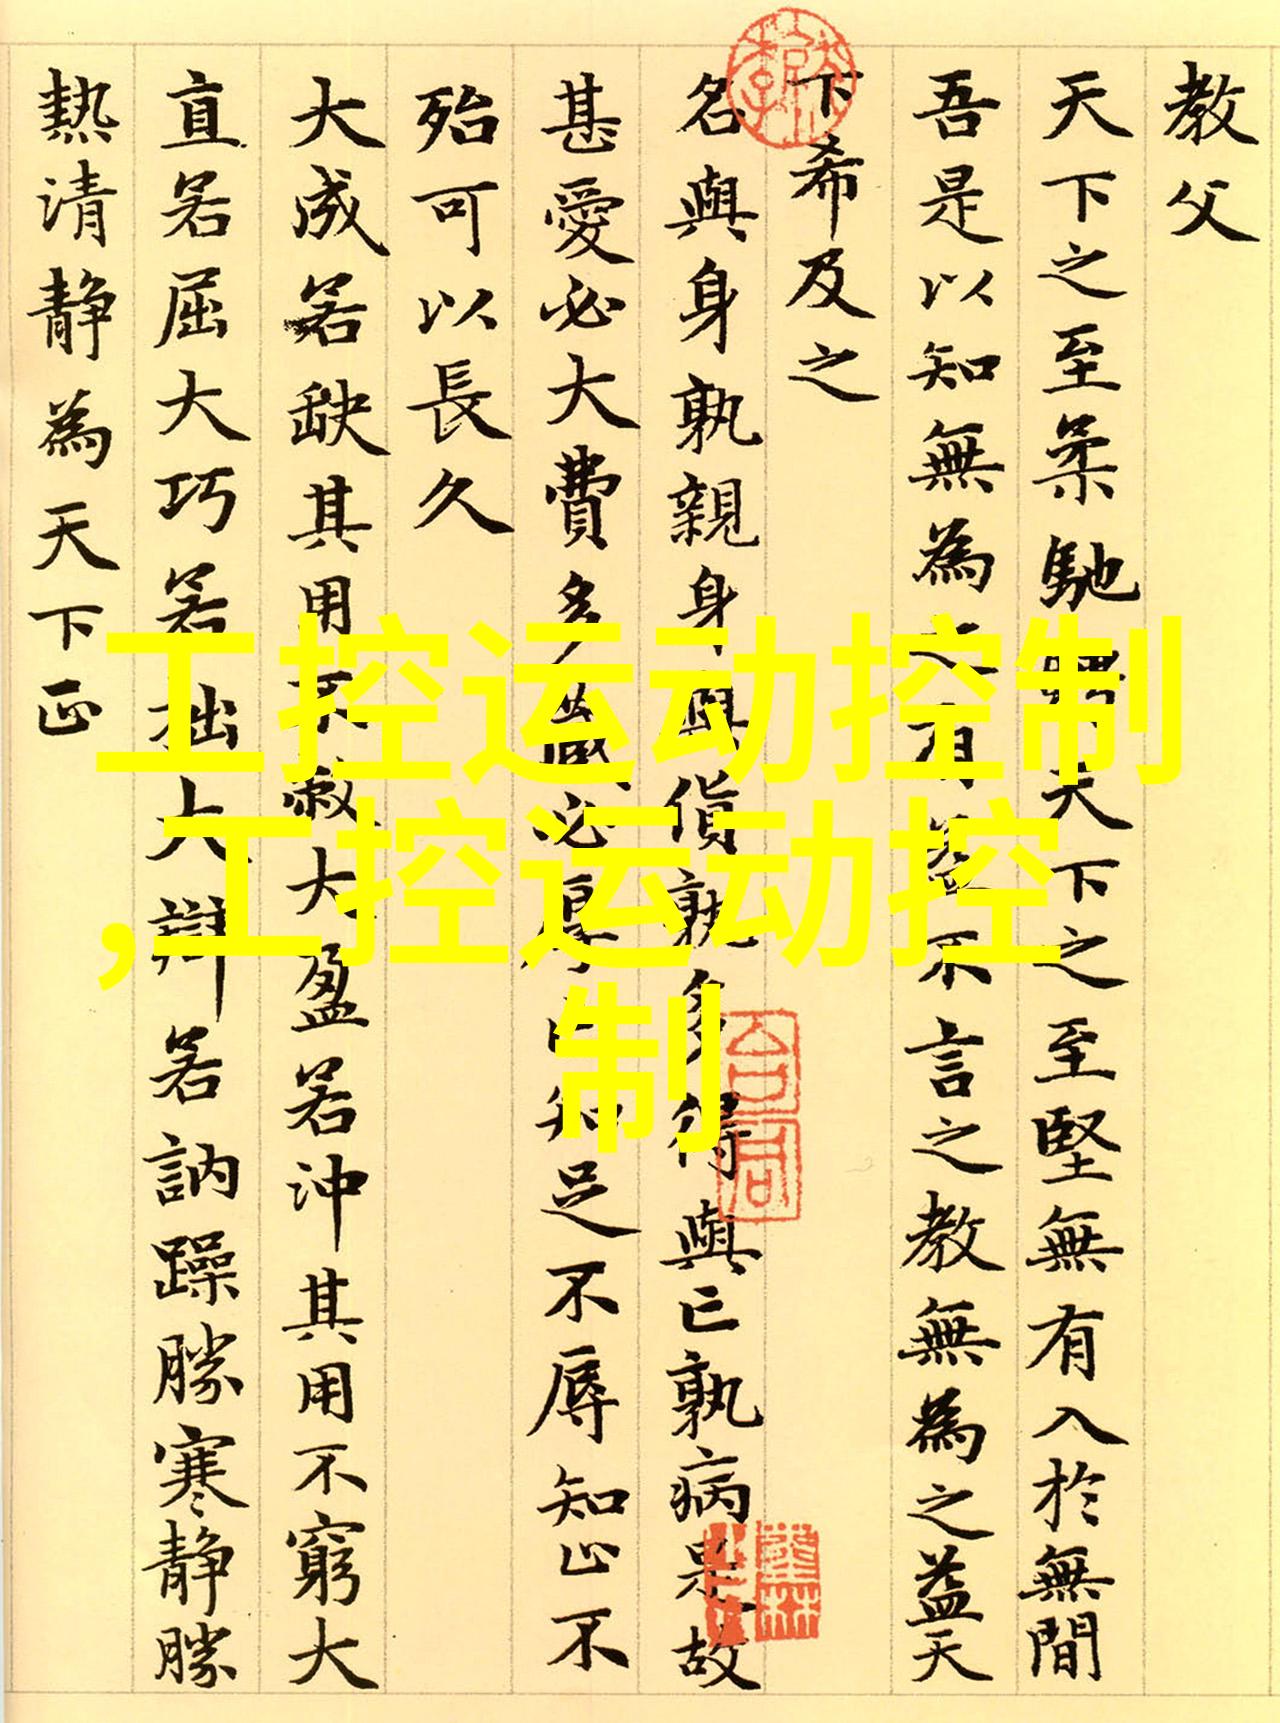 教父
天下之至柔馳騁天下之至堅無有入於無間
吾是以知無為之有益不言之教無為之益天
下希及之
名與身孰親身與貨孰多得與亡孰病是故
甚愛必大費多藏必厚亡知足不辱知止不
殆可以長久
大成若缺其用不敝大盈若沖其用不窮大
直若屈大巧若拙大辯若訥躁勝寒靜勝
熱清靜為天下正
工控运动控制
,工控运动控
制